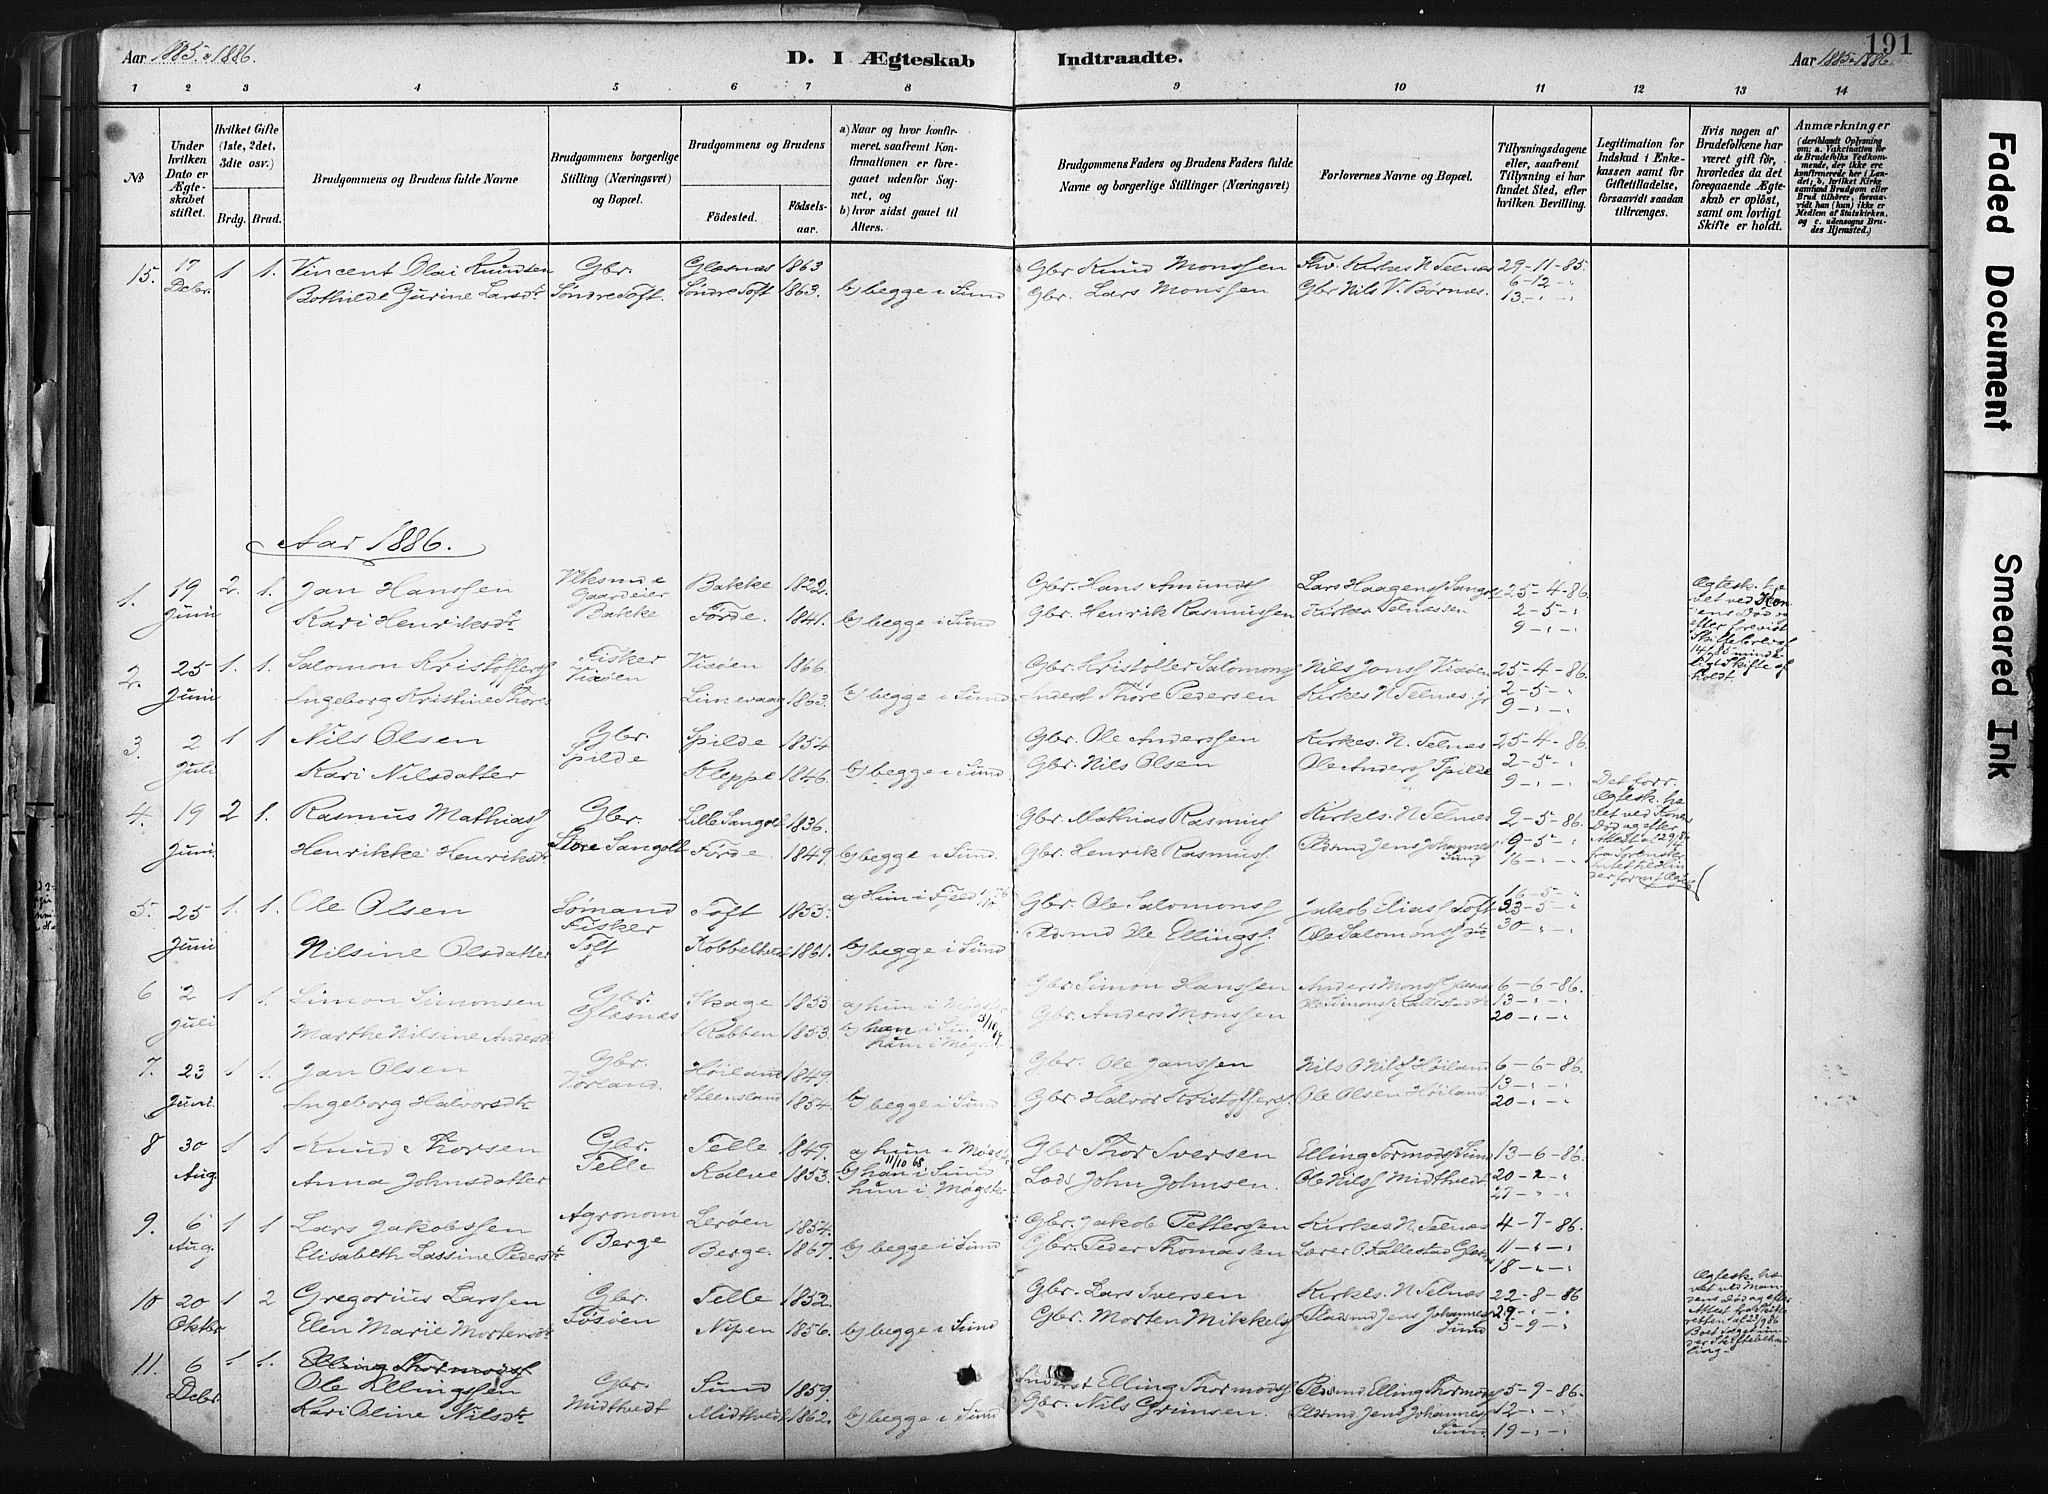 Aar 1885 o 1886.
D. I Ægteskab Indtraadte.
Aar 1885 o 1886
191
1 2 3 4 5 6 7 8 9 10 11 12 13 14
No
Under hvilken Dato er Ægteskabet stiftet.
Hvilket Gifte (1ste, 2det, 3die osv.)
Brdg. Brud.
Brudgommens og Brudens fulde Navne
Brudgommens borgerlige Stilling (Næringsvei) og Bopæl.
Brudgommens og Brudens
Fødested. Fødselsaar.
a) Naar og hvor konfirmeret, saafremt Konfirmationen er foregaaet udenfor Sognet, og
b) hvor sidst gaaet til Alters.
Brudgommens Faders og Brudens Faders fulde Navne og borgerlige Stillinger (Næringsvei)
Forlovernes Navne og Bopæl.
Tillysningsdagene eller, saafremt Tillysning ei har fundet Sted, efter hvilken Bevilling.
Legitimation for Indskud i Enkekassen samt for Giftetilladelse, forsaavidt saadan tiltrænges.
Hvis nogen af Brudefolkene har været gift før, hvorledes da det foregaaende Ægteskab er opløst, samt om lovligt Skifte er holdt.
Anmærkninger
(deriblandt Oplysning om: a. Vakcination for de Brudefolks Vedkommende, der ikke ere konfirmerede her i Landet; b. hvilket Kirkesamfund Brudgom eller Brud tilhører, forsaavidt han (hun) ikke er Medlem af Statskirken, og c. udensogns Brudes Hjemsted.)
15. 17 1 1. Vincent Olai Knudsen Gbr. Glæsnæs 1863 Gbr Knud Monssen Kirkes. N. Telnæs 29-11-85.
Debr. Bothilde Gurine Larsdtr Søndre Toft. Søndre Toft 1863. b) begge i Sund Gbr. Lars Monssen Gbr Nils V. Børnæs. 6-12-"
13-"-"
Aar 1886.
1. 19 2. 1. Jan Hanssen Viksunde Bakke 1822. Gbr. Hans Amunds. Lars Haagens. Sangolt 25-4-86
Gaardeier
Juni Kari Henriksdtr Bakke Førde. 1841. b) begge i Sund Gbr. Henrik Rasmussen Kirkes. Telnessen 2-5-"
9-"-"
Ægtesk. hævet ved Konens Død og efter forevist
2. 25 1. 1. Salomon Kristoffers. Fisker Vixøen 1866 Gbr Kristoffer Salomons. Nils Jons. Vixøen 25-4-86.
Vixøen
Juni Ingeborg Kristine Thores Limevaag 1863. b) begge i Sund Inderst Thore Pedersen Kirkes N. Telnæs jr 2-5-"
9-"-"
holdt.
3. 2 1 1 Nils Olsen Gbr. Spilde 1854 Gbr. Ole Anderssen Kirkes. N. Telnæs 25-4-86.
Spilde
Juli Kari Nilsdatter Kleppe 1846. b) begge i Sund. Gbr. Nils Olsen Ole Anders. Spilde 2-5-"
9-"-"
4. 19 2 1. Rasmus Mathias. Gbr. Lille Sangolt 1836. Gbr. Mathias Rasmus. Kirkes. N. Telnæs 2-5-86.
Juni Henrikke Henriksdtr Store Sangolt Førde. 1849. b) begge i Sund. Gbr. Henrik Rasmus. Pladsmd Jens Johannes. 9-5-"
Sund 16-"-"
Det forr. Ægtesk. hævet ved Konens Død og efter
5. 25 1. 1. Ole Olsen Sømand Toft 1855. a) Hun i Fjeld Gbr. Ole Salomons. Jakob Elias. Toft 16-5-"
Fisker 23-5-"
Juni Nilsine Olsdatter Toft Kobbeltvedt 1861. b) begge i Sund Pladsmd Ole Ellings. Ole Salomons. 30-"-"
6 2 1 1. Simon Simonsen Gbr. Skage 1855 a) hun i Møgster Gbr. Simon Hanssen Anders Mons. 6-6-86.
Juli Marthe Nilsine Andersdtr Glæsnæs Krabben 1853. b) han i Sund Gbr. Anders Monssen Ole Simons. Kallestad 13-"-"
hun i Møgster 20-"-"
7. 23 1 1. Jan Olsen Gbr. Høiland 1849. Gbr. Ole Janssen Nils O Nils. Høiland 6-6-86.
Vorland.
Juni. Ingeborg Halvorsdtr Steensland 1854. b) begge i Sund Gbr. Halvor Kristoffers. Ole Olsen Høiland 13-"-"
20-"-"
8 30 1 1 Knud Thorsen Gbr. Telle 1849. a) hun i Møgst. Gbr Thor Iversen Elling Tormods. Sund 13-6-86.
Telle 11/10 68
Aug. Anna Johnsdatter Kalve 1853. b) han i Sund Lods John Johnsen. Ole Nils. Midthvedt 20-"-"
hun i Møgster 27-"-"
9. 6 1 1 Lars Jakobssen Agronom Lerøen 1854. Gbr. Jakob Pettersen Kirkes. N. Telnæs 4-7-86.
Aug. Elisabeth Lassine Pedersdtr Berge Berge. 1867. b) begge i Sund Gbr. Peder Thomassen Lærer O. Kallestad 11-"-"
18-"-"
10 20 1 2 Gregorius Larssen Gbr. Telle 1852. Gbr. Lars Iversen Kirkes. N. Telnæs 22-8-86
Oktbr Elen Marie Mortensdtr Tøsøen Nipen 1856. b) begge i Sund Gbr. Morten Mikkels. Pladsmd Jens Johannes. 29-"-"
Sund 5-9-"
Ægtesk. hævet ved Mandens Død og efter Attest fra Skifteretten af 23/9 86
11. 6 1 1. Elling Thormods.
Debr. Ole Ellingssen Gbr. Sund 1859. Inderst Elling Thormods. Pladsmd Elling Thormods. 5-9-86.
Kari Oline Nilsdtr Midthvedt Midthvedt 1862. b) begge i Sund Gbr. Nils Grimsen. Pladsmd Jens Johannes. 12-"-"
Sund 19-"-"
Faded Document
Smeared Ink